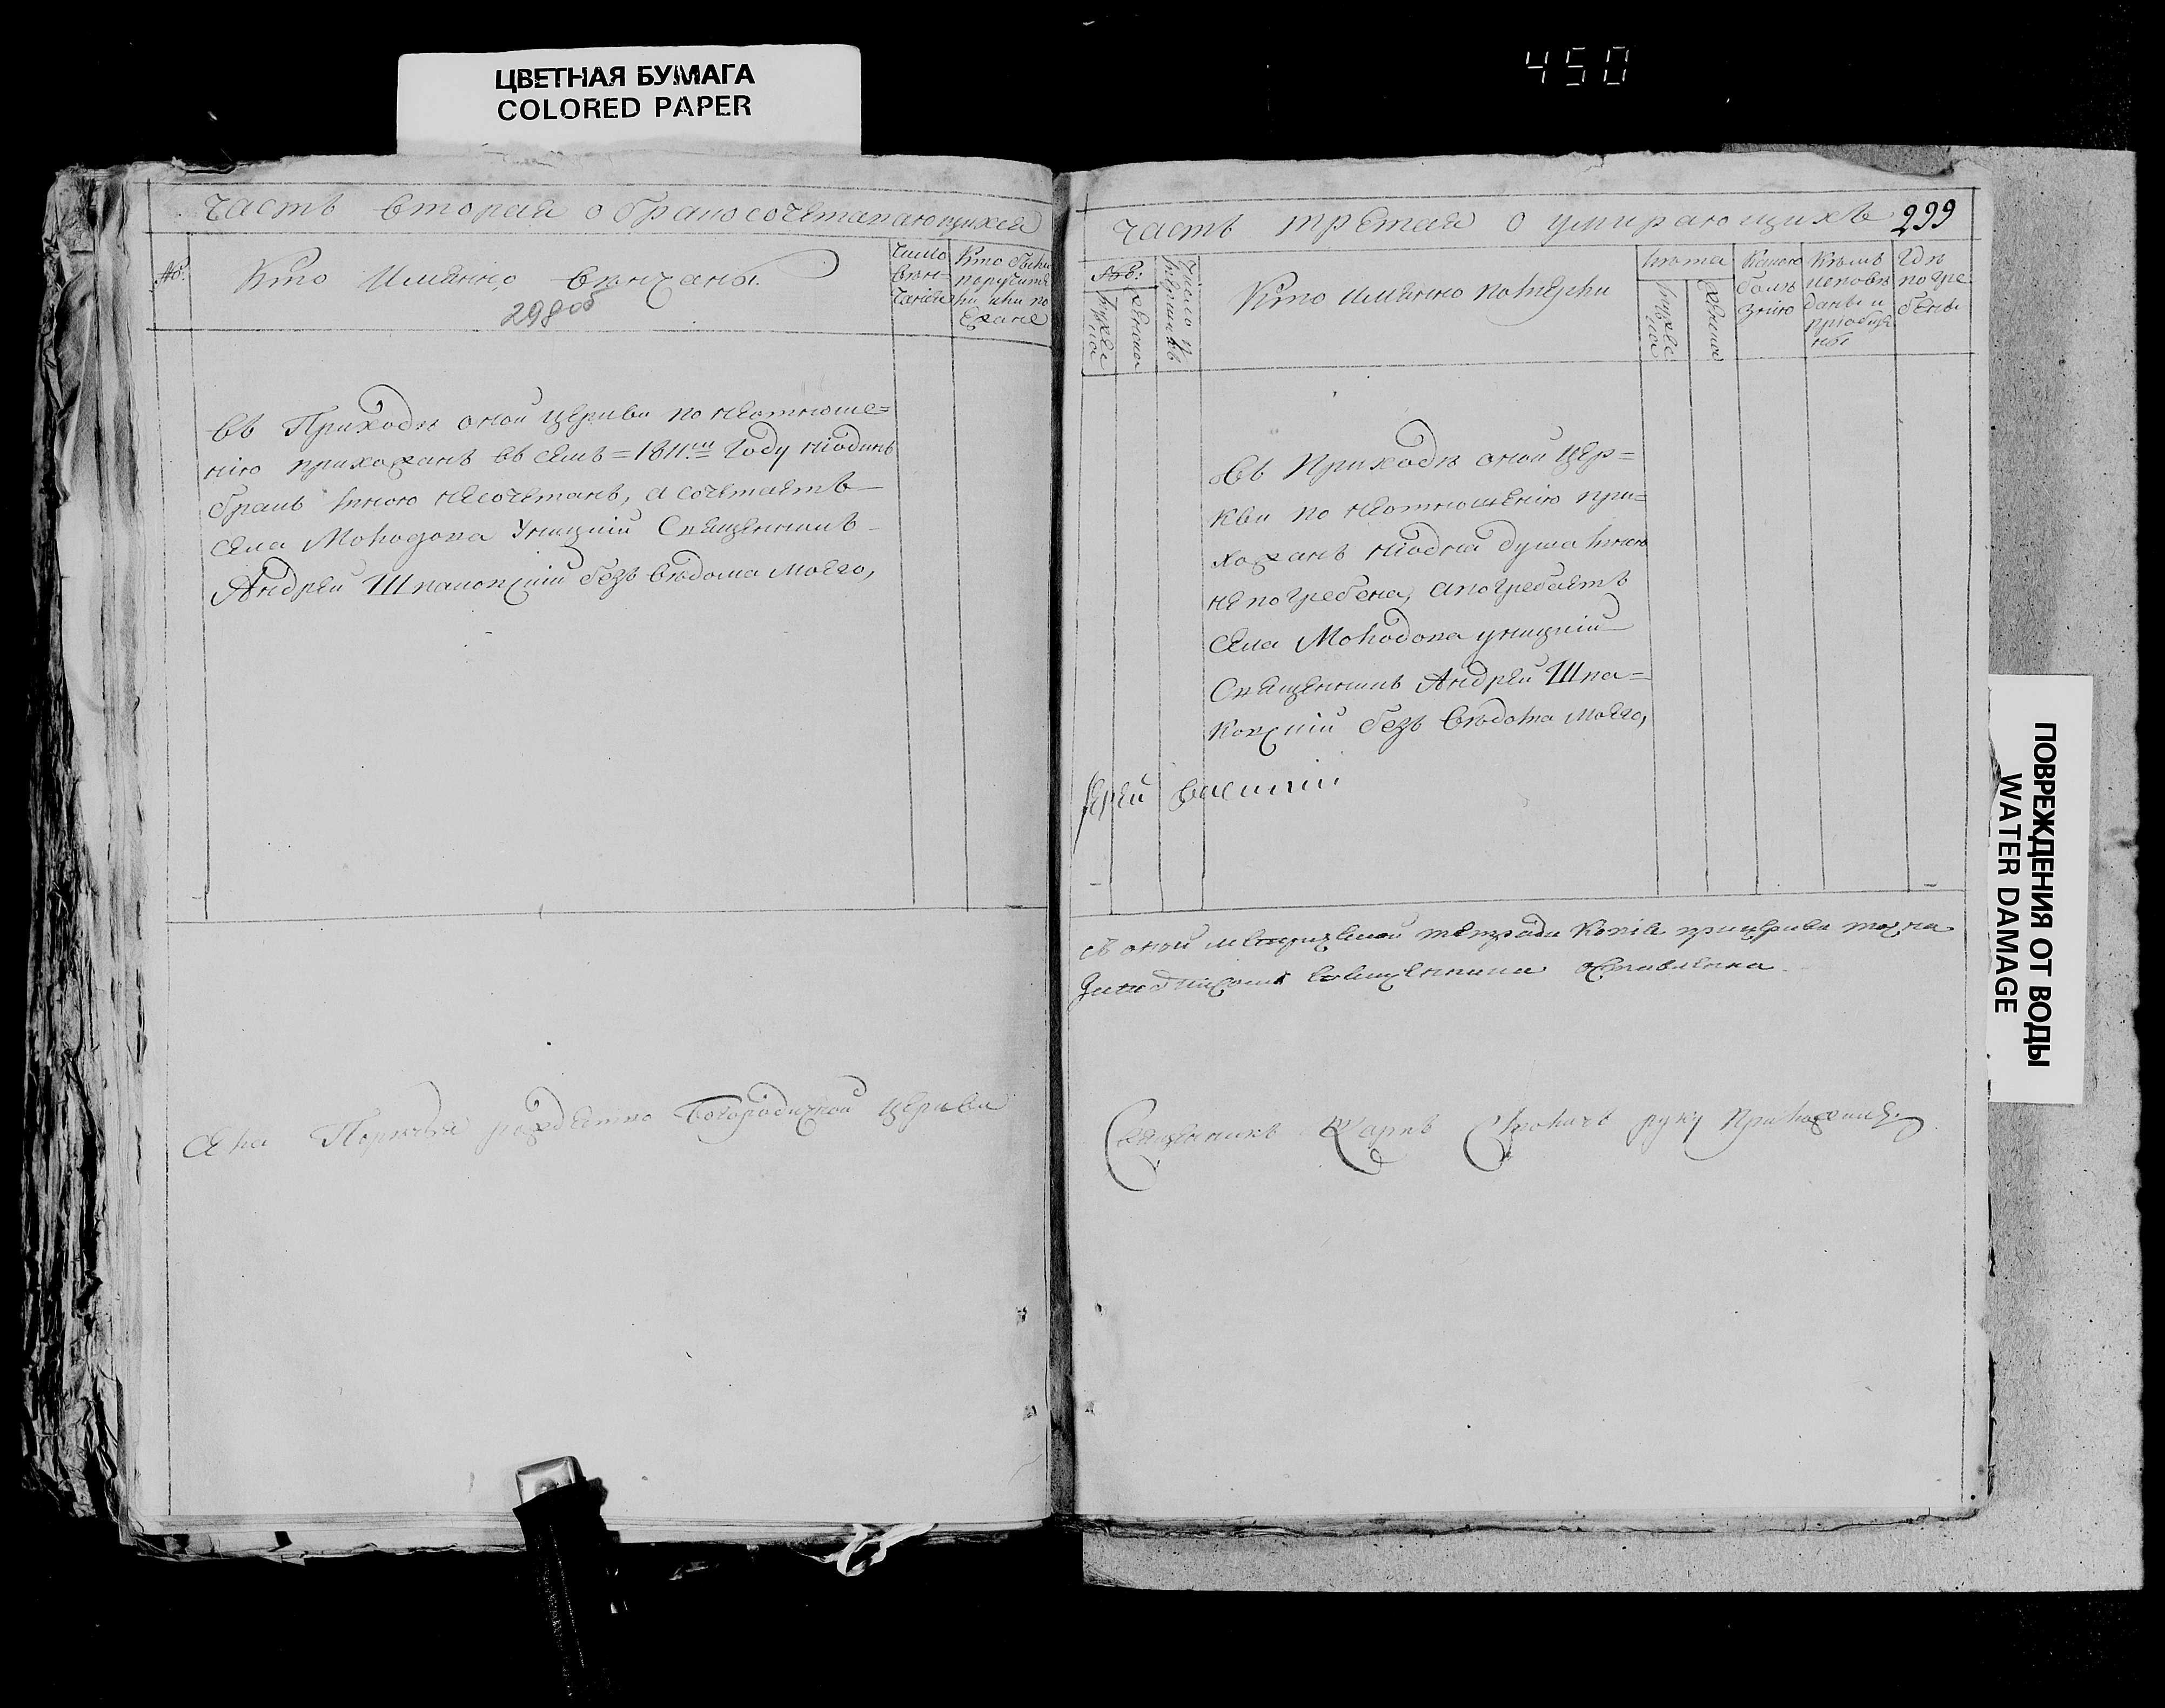 ЦВЕТНАЯ БУМАГА
COLORED PAPER
450
Часть вторая о бракосочетавающихся
№.
Кто имянно вѣнчаны.
298 об
Число
вѣн-
чания
Кто были
поручите
ли, или по
езжане
въ Приходѣ оной церкви по неотноше=
нію прихожанъ въ семъ =1811.м Году ніодинъ
бракъ мною несочетанъ, а сочетаетъ
села Молодова Уницкій Священникъ
Андрей Шпаковскій безъ вѣдома моего,
Села Порѣчья рождество Богородичной церкви
Часть третая о умирающихъ
299
№:
мужеска
женска
Число
умершихъ
Кто имянно померли
лѣта
мужеска
женска
Какою
болѣ
знію
Кѣмъ
исповѣ
даны и
пріобще
ны
Гдѣ
погре
бены
въ Приходѣ оной цер=
кви по неотношенію при=
хожанъ ніодна душа мною
непогребена, апогребаетъ
Села Молодова уницкій
Священникъ Андрей Шпа=
ковскій безъ вѣдома моего,
Іерей Василій
съ оной метрической тетради копія прицеркви точна
священника оставлена.
Священникъ руку Приложилъ
ПОВРЕЖДЕНИЯ ОТ ВОДЫ
WATER DAMAGE